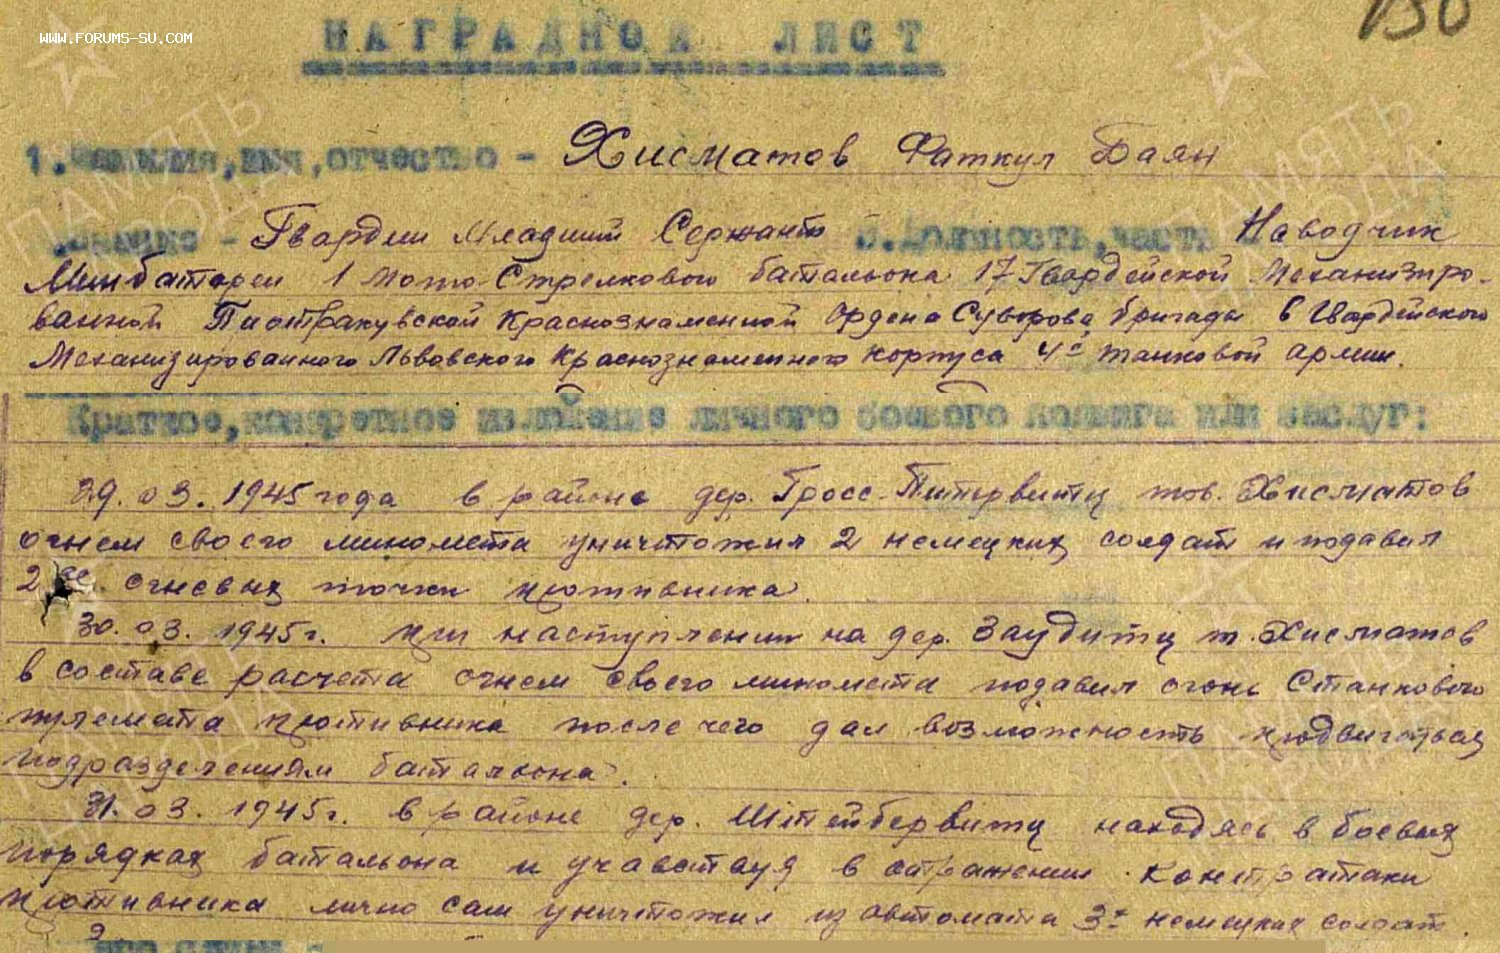 WWW.FORUMS-SU.COM
130
НАГРАДНОЙ ЛИСТ
1. Фамилия, имя, отчество - Хисматов Фаткул Баян
Звание - Гвардии Младший Сержант 3. Должность, часть Наводчик
Минбатареи 1 мото-Стрелкового батальона 17 Гвардейской Механизиро-
ванной Пиотракувской Краснознаменной Ордена Суворова бригады 6 Гвардейского
Механизированного Львовского Краснознаменного корпуса 4й танковой армии.
Краткое, конкретное изложение личного боевого подвига или заслуг:
29.03.1945 года в районе дер. Гросс-Питервитц тов. Хисматов
огнем своего миномета уничтожил 2 немецких солдат и подавил
2 огневых точки противника.
30.03.1945г. при наступлении на дер. Заудитц т. Хисматов
в составе расчета огнем своего миномета подавил огонь Станкового
пулемета противника после чего дал возможность продвигаться
подразделениям батальона.
31.03.1945г. в районе дер. Штейбервитц находясь в боевых
порядках батальона и учавствуя в отражении контратаки
противника лично сам уничтожил из автомата 3х немецких солдат.
ПАМЯТЬ НАРОДА
ПАМЯТЬ НАРОДА
ПАМЯТЬ НАРОДА
ПАМЯТЬ НАРОДА